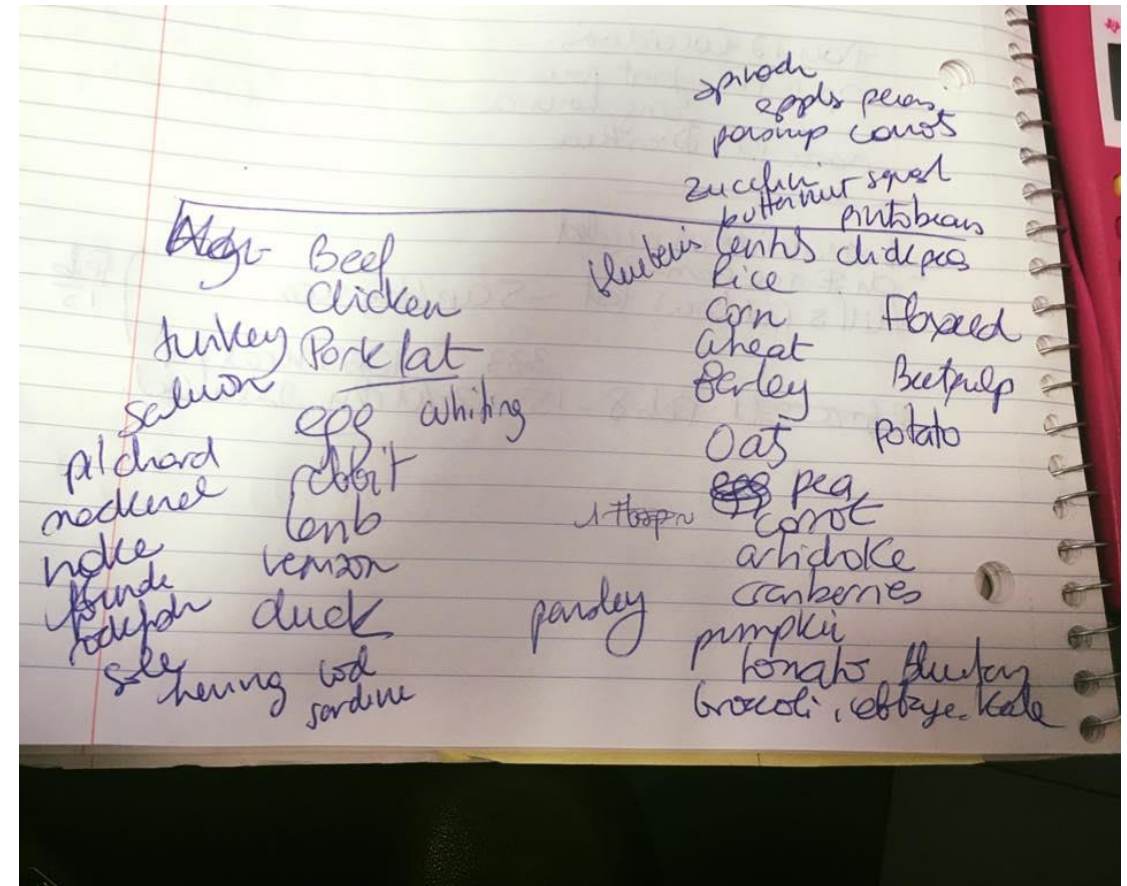 spinach
apples pears
parsnip carrots
zucchini squash
butternut pintobeans
Beef
Chicken
turkey Pork fat
salmon
egg whiting
pilchard rabbit
mackerel lamb
hake venison
flounder
rockfish duck
sole herring cod
sardine
blueberries lentils chickpeas
Rice
Corn Flaxseed
wheat
Barley Beetpulp
Oats potato
pea
carrot
artichoke
cranberries
parsley pumpkin
tomato
brocoli, cabbage, kale